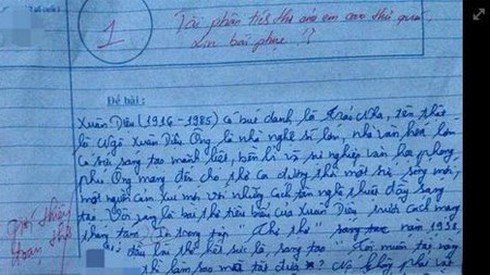 1
Tài phân tích thơ của em cao thủ quá,
xin bái phục !!
Đề bài:
Xuân Diệu (1916 - 1985) có bút danh là Trảo Nha, tên thật
là Ngô Xuân Diệu. Ông là nhà nghệ sĩ lớn, nhà văn hóa lớn
có sức sáng tạo mãnh liệt, bền bỉ và sự nghiệp văn hóa phong
phú Ông mang đến cho thơ ca đương thời một sức sống mới,
một nguồn cảm xúc mới với những cách tân nghệ thuật đầy sáng
tạo. Vội vàng là bài thơ tiêu biểu của Xuân Diệu trước cách mạng
tháng tám. In trong tập "Thơ thơ" sáng tác năm 1938,
giới thiệu
đoạn thơ
đầu bài thơ hết sức là sáng tạo "Tôi muốn tắt nắng